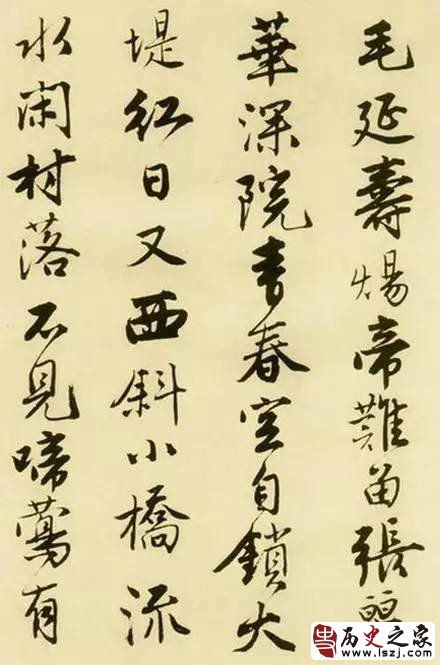 毛延壽煬帝難留張麗
華深院青春空自鎖大
堤紅日又西斜小橋流
水閑村落不見啼鶯有
史
历史之家
www.lszj.com